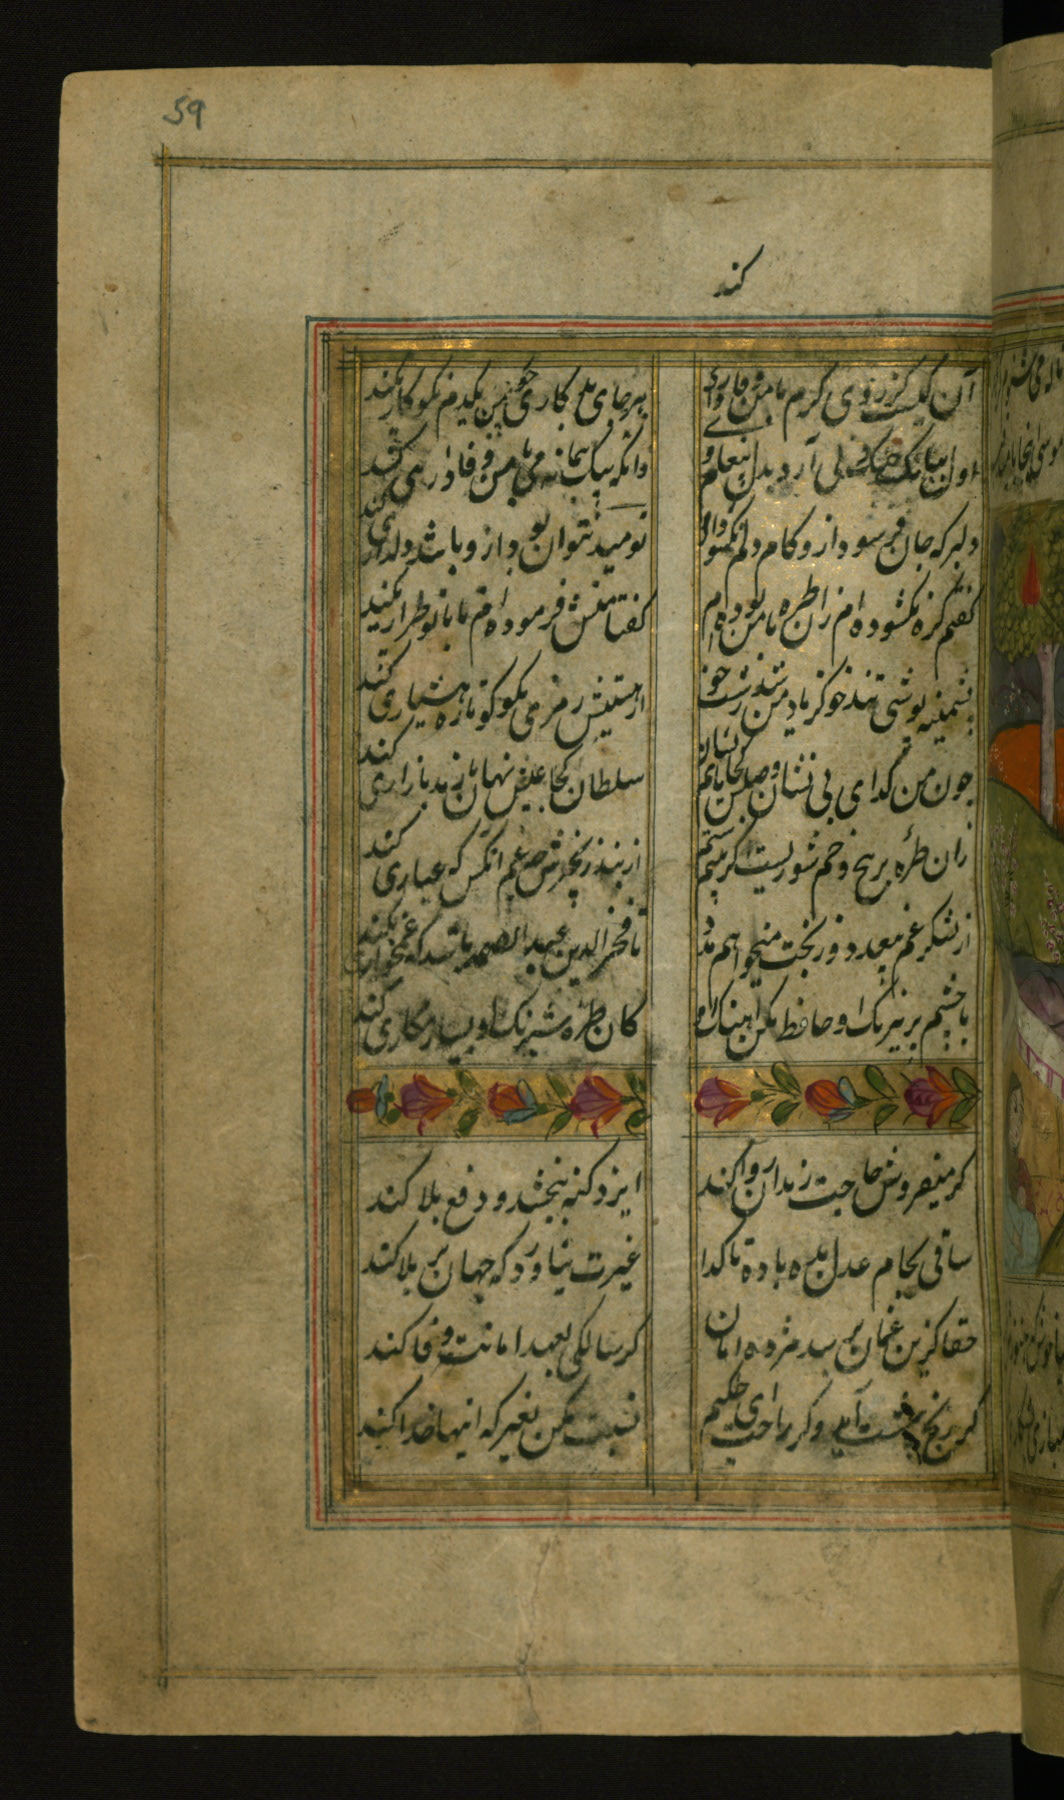 59
کند
آن کیست کز روی کرم با من وفاداری کند
بر جای بدکاری چو من یکدم نکوکاری کند
اول ببانک نای و نی آرد بدل پیغام وی
وانکه بیک پیمانه می با من وفاداری کند
دلبر که جان فرسود ازو کام دلم نکشود ازو
نومید نتوان بود ازو باشد دلداری کند
کفتم کره نکشوده‌ام زان طره تا من بوده‌ام
کفتا منش فرموده‌ام تا با تو طراری کند
پشمینه پوش تند خو کز یاد من شد زشت خو
از مستیش رمزی بکو تا ره هشیاری کند
چون من کدای بی نشان وصلش کجا یابم نشان
سلطان کجا عیش نهان با رند بازاری کند
زان طرهٔ بر پیچ و خم شوریست کر بینم ستم
از بند و زنجیرش چه غم آنکس که عیاری کند
از لشکر غم بیعدد وز بخت میخواهم مدد
تا فخرالدین عبدالصمد باشد که غمخواری کند
با چشم بر نیرنک او حافظ مکن آهنک او
کان طرهٔ شبرنک او بسیار مکاری کند
کر میفروش حاجت رندان روا کند
ایزد کنه ببخشد و دفع بلا کند
ساقی بجام عدل بده باده تا کدا
غیرت نیاورد که جهان پر بلا کند
حقا کزین غمان برسد مژده امان
کر سالکی بعهد امانت وفا کند
کر رنج پیشت آید و کر راحت ای حکیم
نسبت مکن بغیر که اینها خدا کند